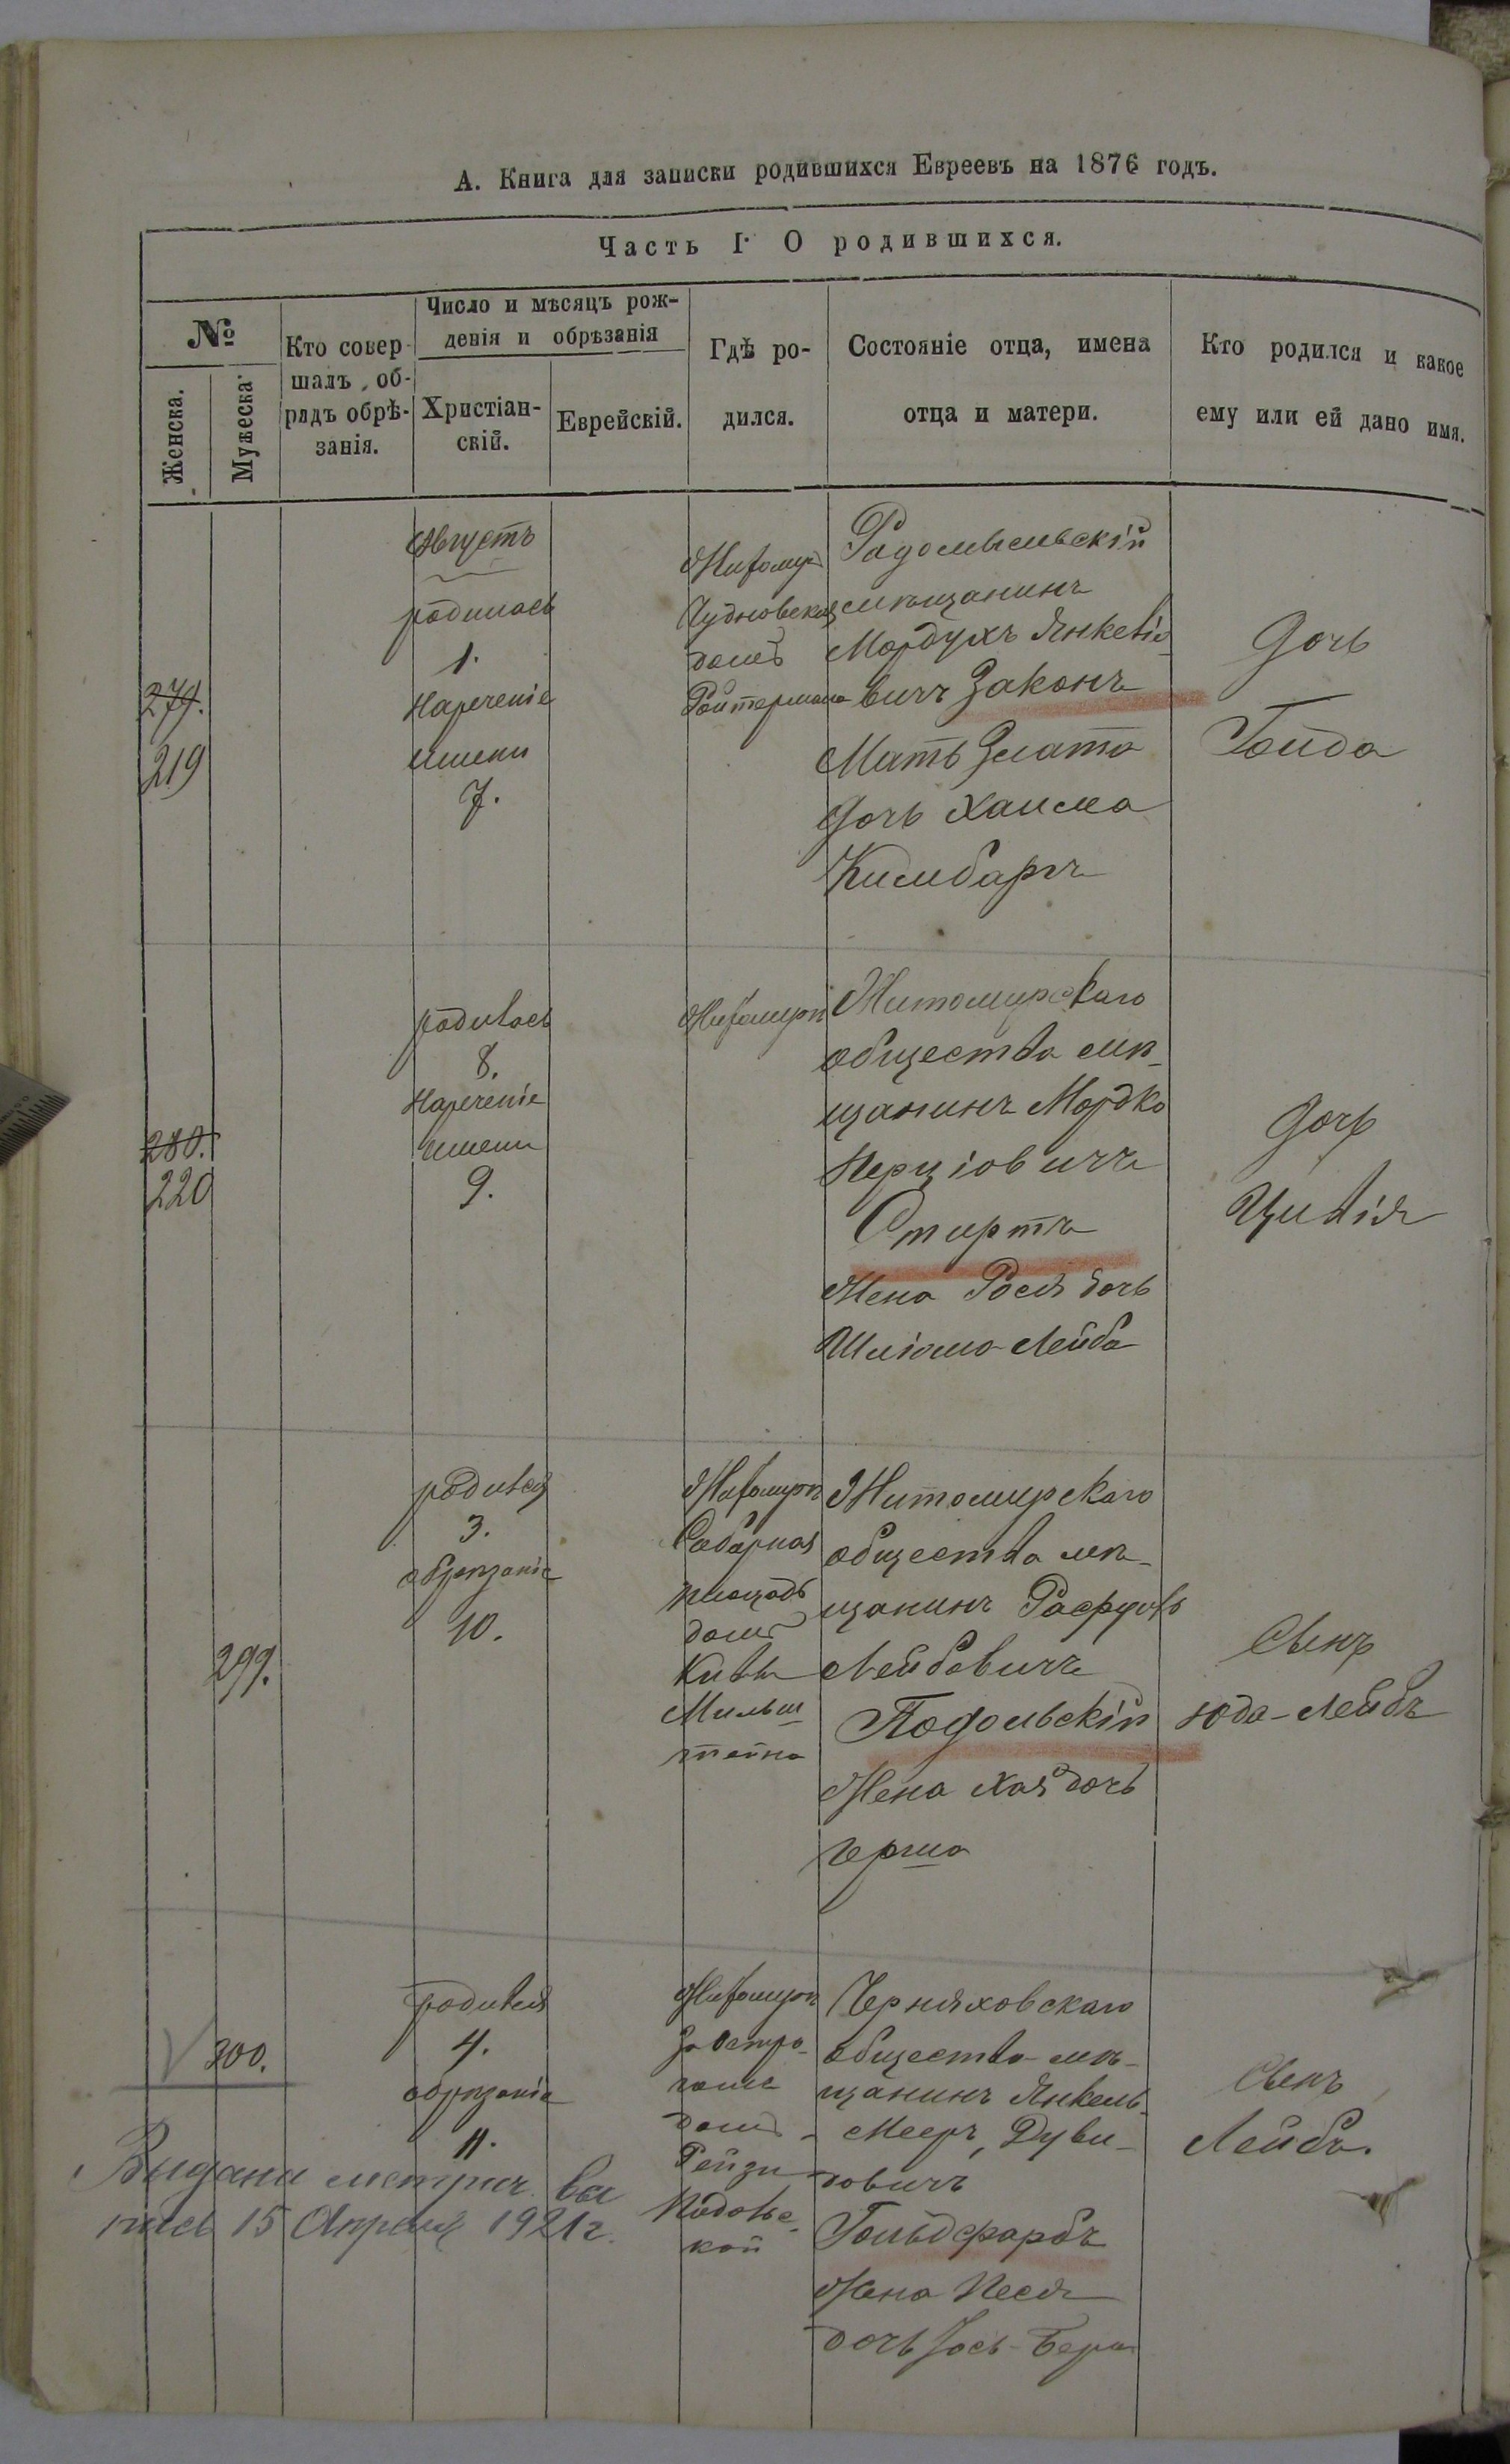 А. Книга для записки родившихся Евреевъ на 1876 годъ.
Часть I. О родившихся.
№
Женска.
Мужеска
Кто совер-
шалъ об-
рядъ обрѣ-
занія.
Число и мѣсяцъ рож-
денія и обрѣзанія
Христіан-
скій.
Еврейскій.
Гдѣ ро-
дился.
Состояніе отца, имена
отца и матери.
Кто родился и какое
ему или ей дано имя.
279.
219
Августъ
родилась
1.
Нареченіе
имени
7.
Житомир
Чудновская
домъ
Ройтермана
Радомысльскій
мѣщанинъ
Мордухъ Янкеліо-
вичъ Законъ
Мать Злата
Дочь Хаима
Кимбаръ
Дочь
Гойда
280.
220
родилась
8.
Нареченіе
имени
9.
Житомирѣ
Житомирскаго
общества мѣ-
щанинъ Мордко
Перціовичъ
Стиртъ
Жена Рося дочь
Шліома-Лейба
Дочь
Цивія
299.
родился
3.
обрѣзаніе
10.
Житомирѣ
Соборная
площадь
домъ
Кивы
Мильш-
тейна
Житомирскаго
общества мѣ-
щанинъ
Лейбовичъ
Подольскій
Жена Хая дочь
Герша
Сынъ
Юда-Лейбъ
300.
родился
4.
обрѣзаніе
11.
Житомирѣ
домъ
Рейзи
Подоль-
кой
Черняховскаго
общества мѣ-
щанинъ Янкель-
Мееръ, Дуви-
довичъ
Гольдфарбъ
Жена Песя
дочь Іось-Бера
Сынъ
Лейбъ.
Выдана метрич. вы
пись 15 Апреля 1921 г.